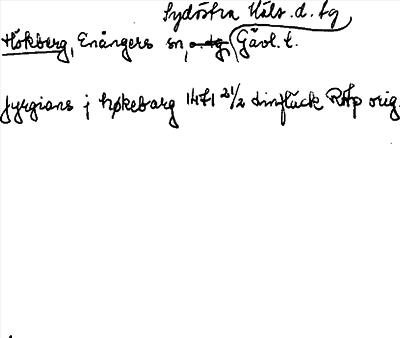 Sydöstra Häls. d. tg
Hökberg, Enångers sn, Gävl. l.
jyrgians j høkebarg 1471 21/2 Hinflück RAp orig.